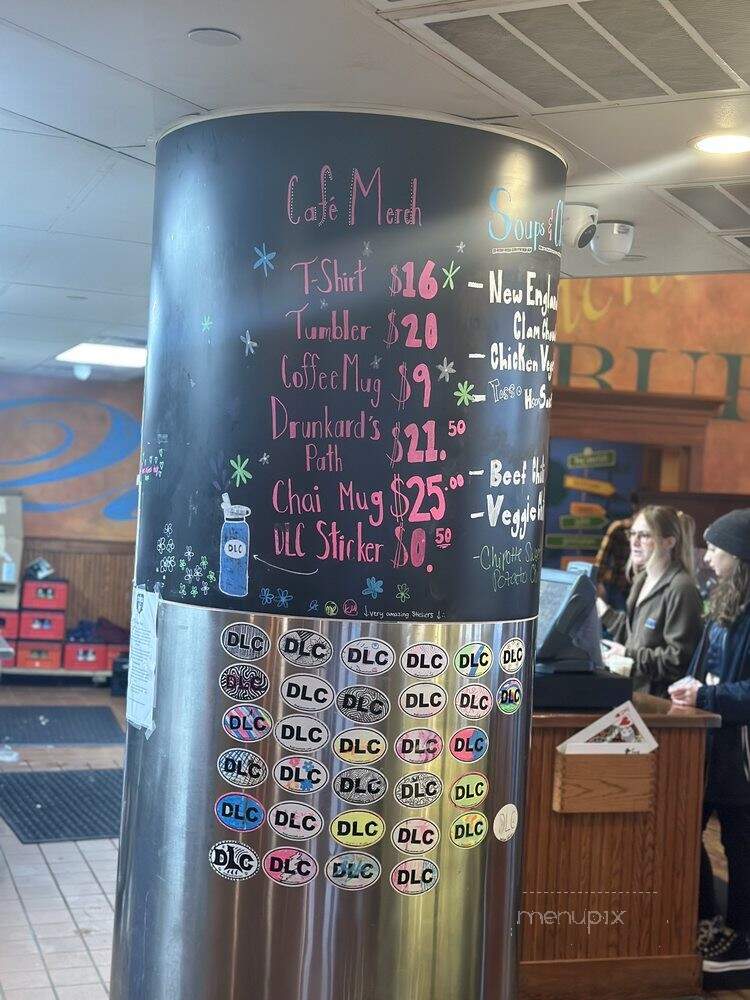 Café Merch
T-Shirt $16
Tumbler $20
Coffee Mug $9
Drunkard's $21.50
Path
Chai Mug $25.00
DLC Sticker $0.50
↓very amazing stickers↓
DLC
Soups &
- New
Clam
- Chicken
- Beef
- Veggie
- Chipotle
Potato
DLC DLC DLC DLC DLC DLC
DLC DLC DLC DLC DLC DLC
DLC DLC DLC DLC DLC
DLC DLC DLC DLC DLC
DLC DLC DLC DLC DLC DLC
DLC DLC DLC DLC
menupix